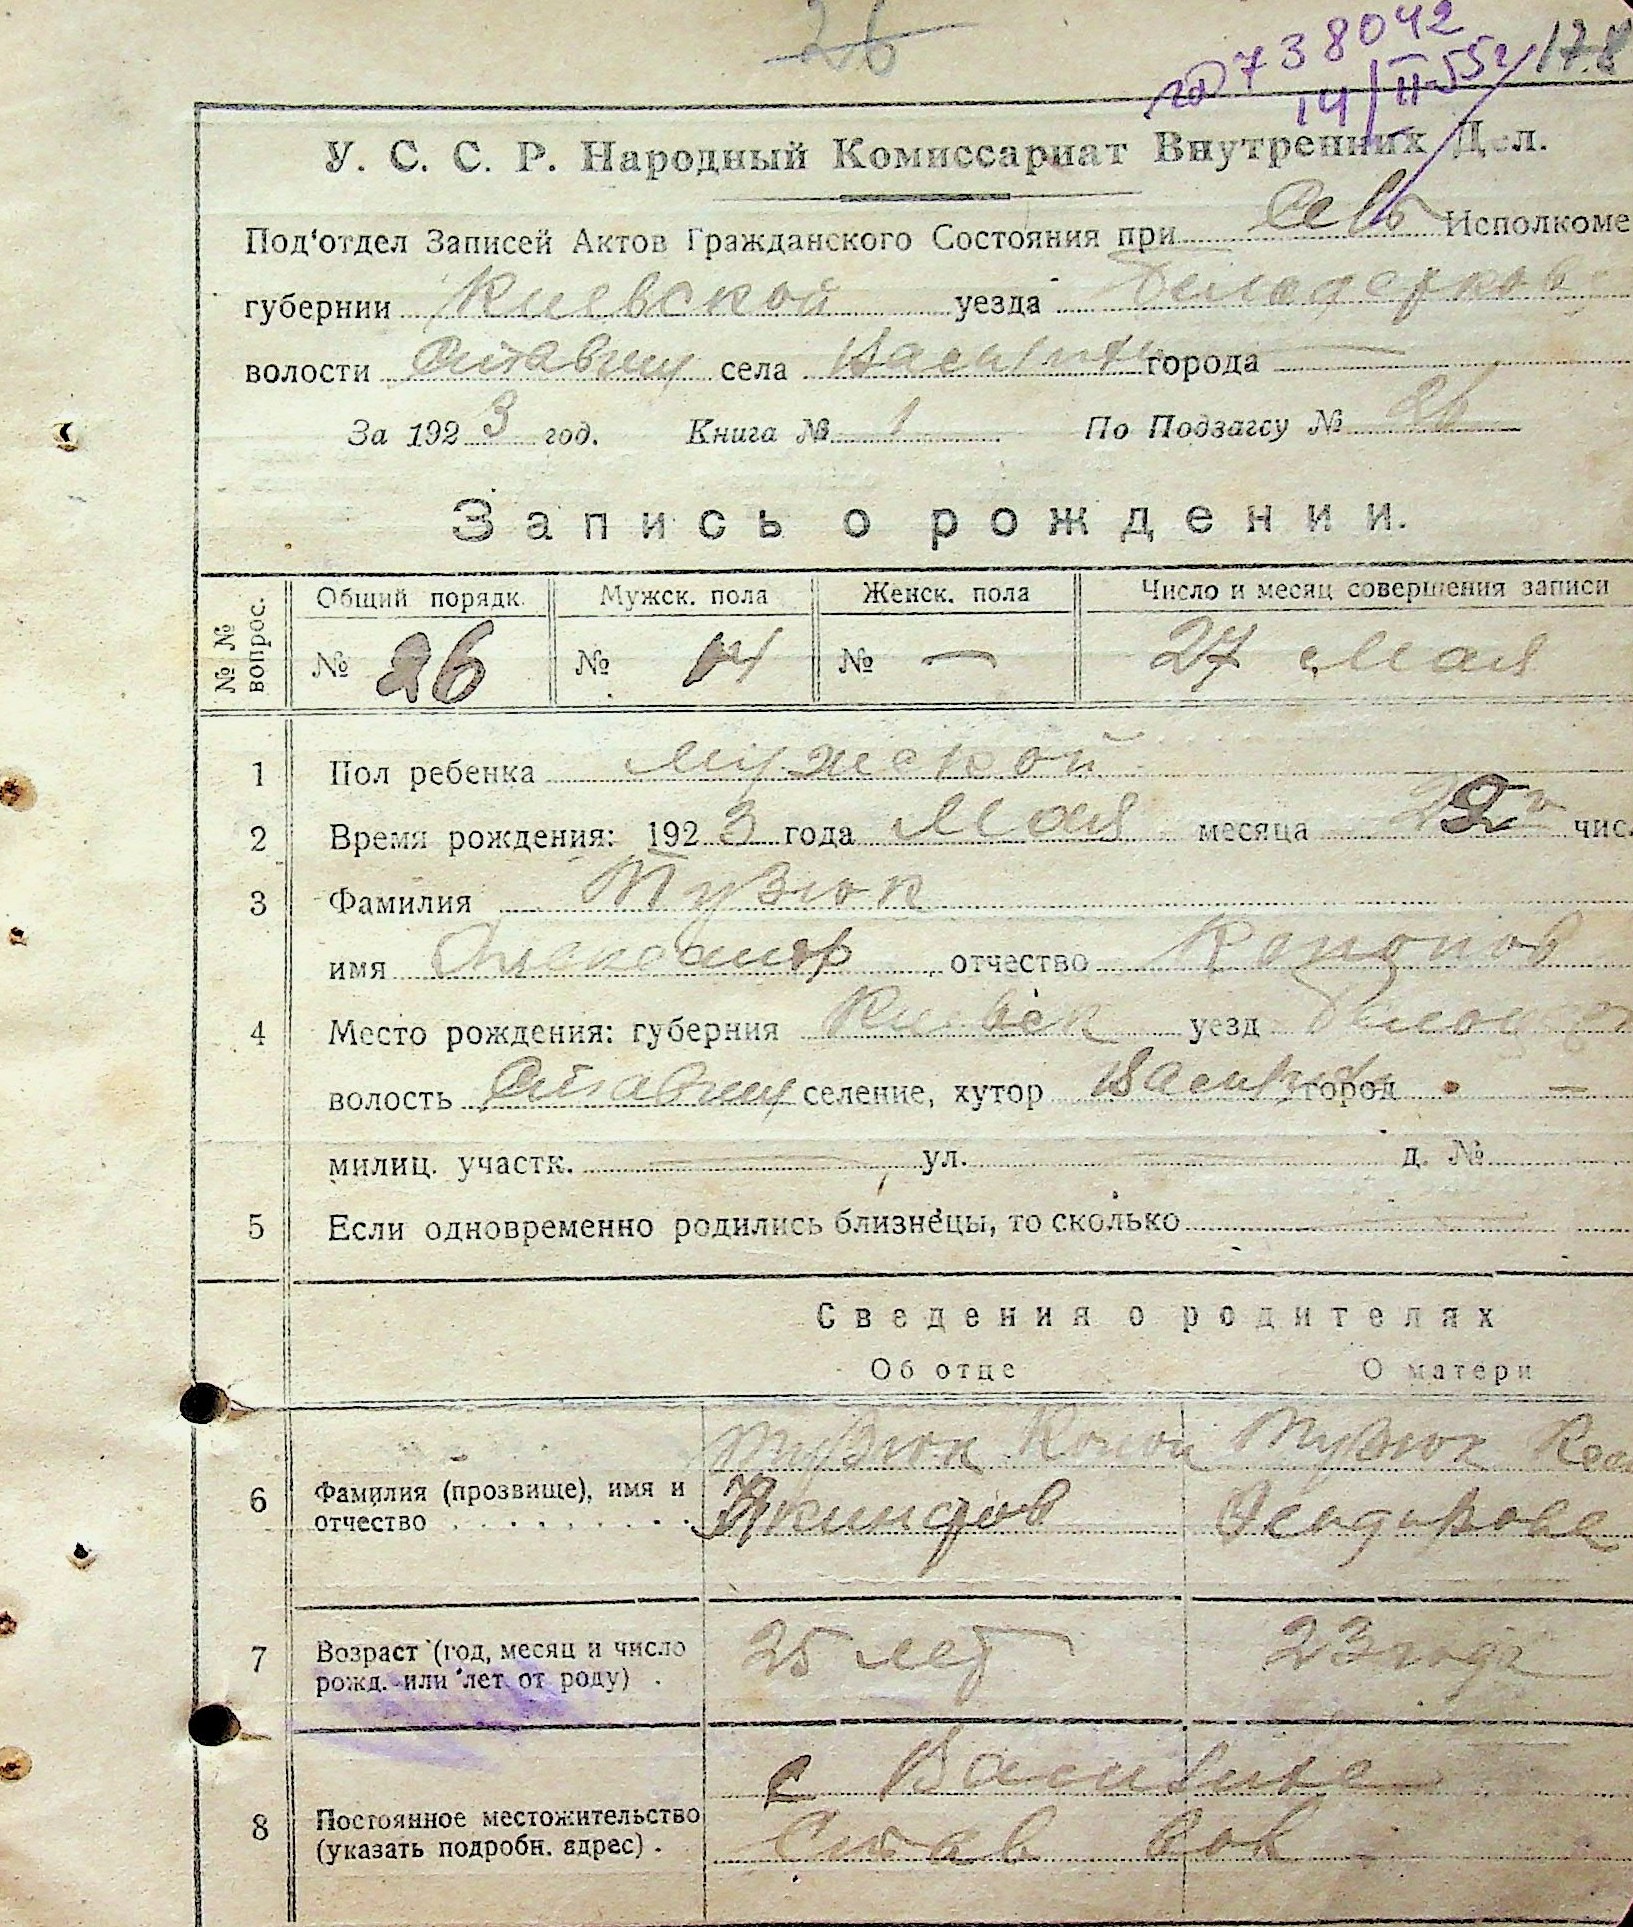 26
738042
14/II-55г
178
У. С. С. Р. Народный Комиссариат Внутренних Дел.
Под'отдел Записей Актов Гражданского Состояния при Сель Исполкоме
губернии Киевской уезда Билоцерков
волости Ставищ села города —
За 1923 год. Книга № 1 По Подзагсу № 26
Запись о рождении.
№ № вопрос.
Общий порядк. Мужск. пола Женск. пола Число и месяц совершения записи
№ 26 № 14 № — 27 Мая
1 Пол ребенка мужской
2 Время рождения: 1923 года Мая месяца 22го чис.
3 Фамилия Тузюк
имя Александр отчество Кононов
4 Место рождения: губерния Киевск уезд Билоцер
волость Ставищ селение, хутор город —
милиц. участк. — ул. — д. №
5 Если одновременно родились близнецы, то сколько —
Сведения о родителях
Об отце О матери
Тузюк Конон Тузюк
6 Фамилия (прозвище), имя и отчество Якинфов
7 Возраст (год, месяц и число рожд. или лет от роду) 25 лет 23 года
с
8 Постоянное местожительство (указать подробн. адрес) Став вол